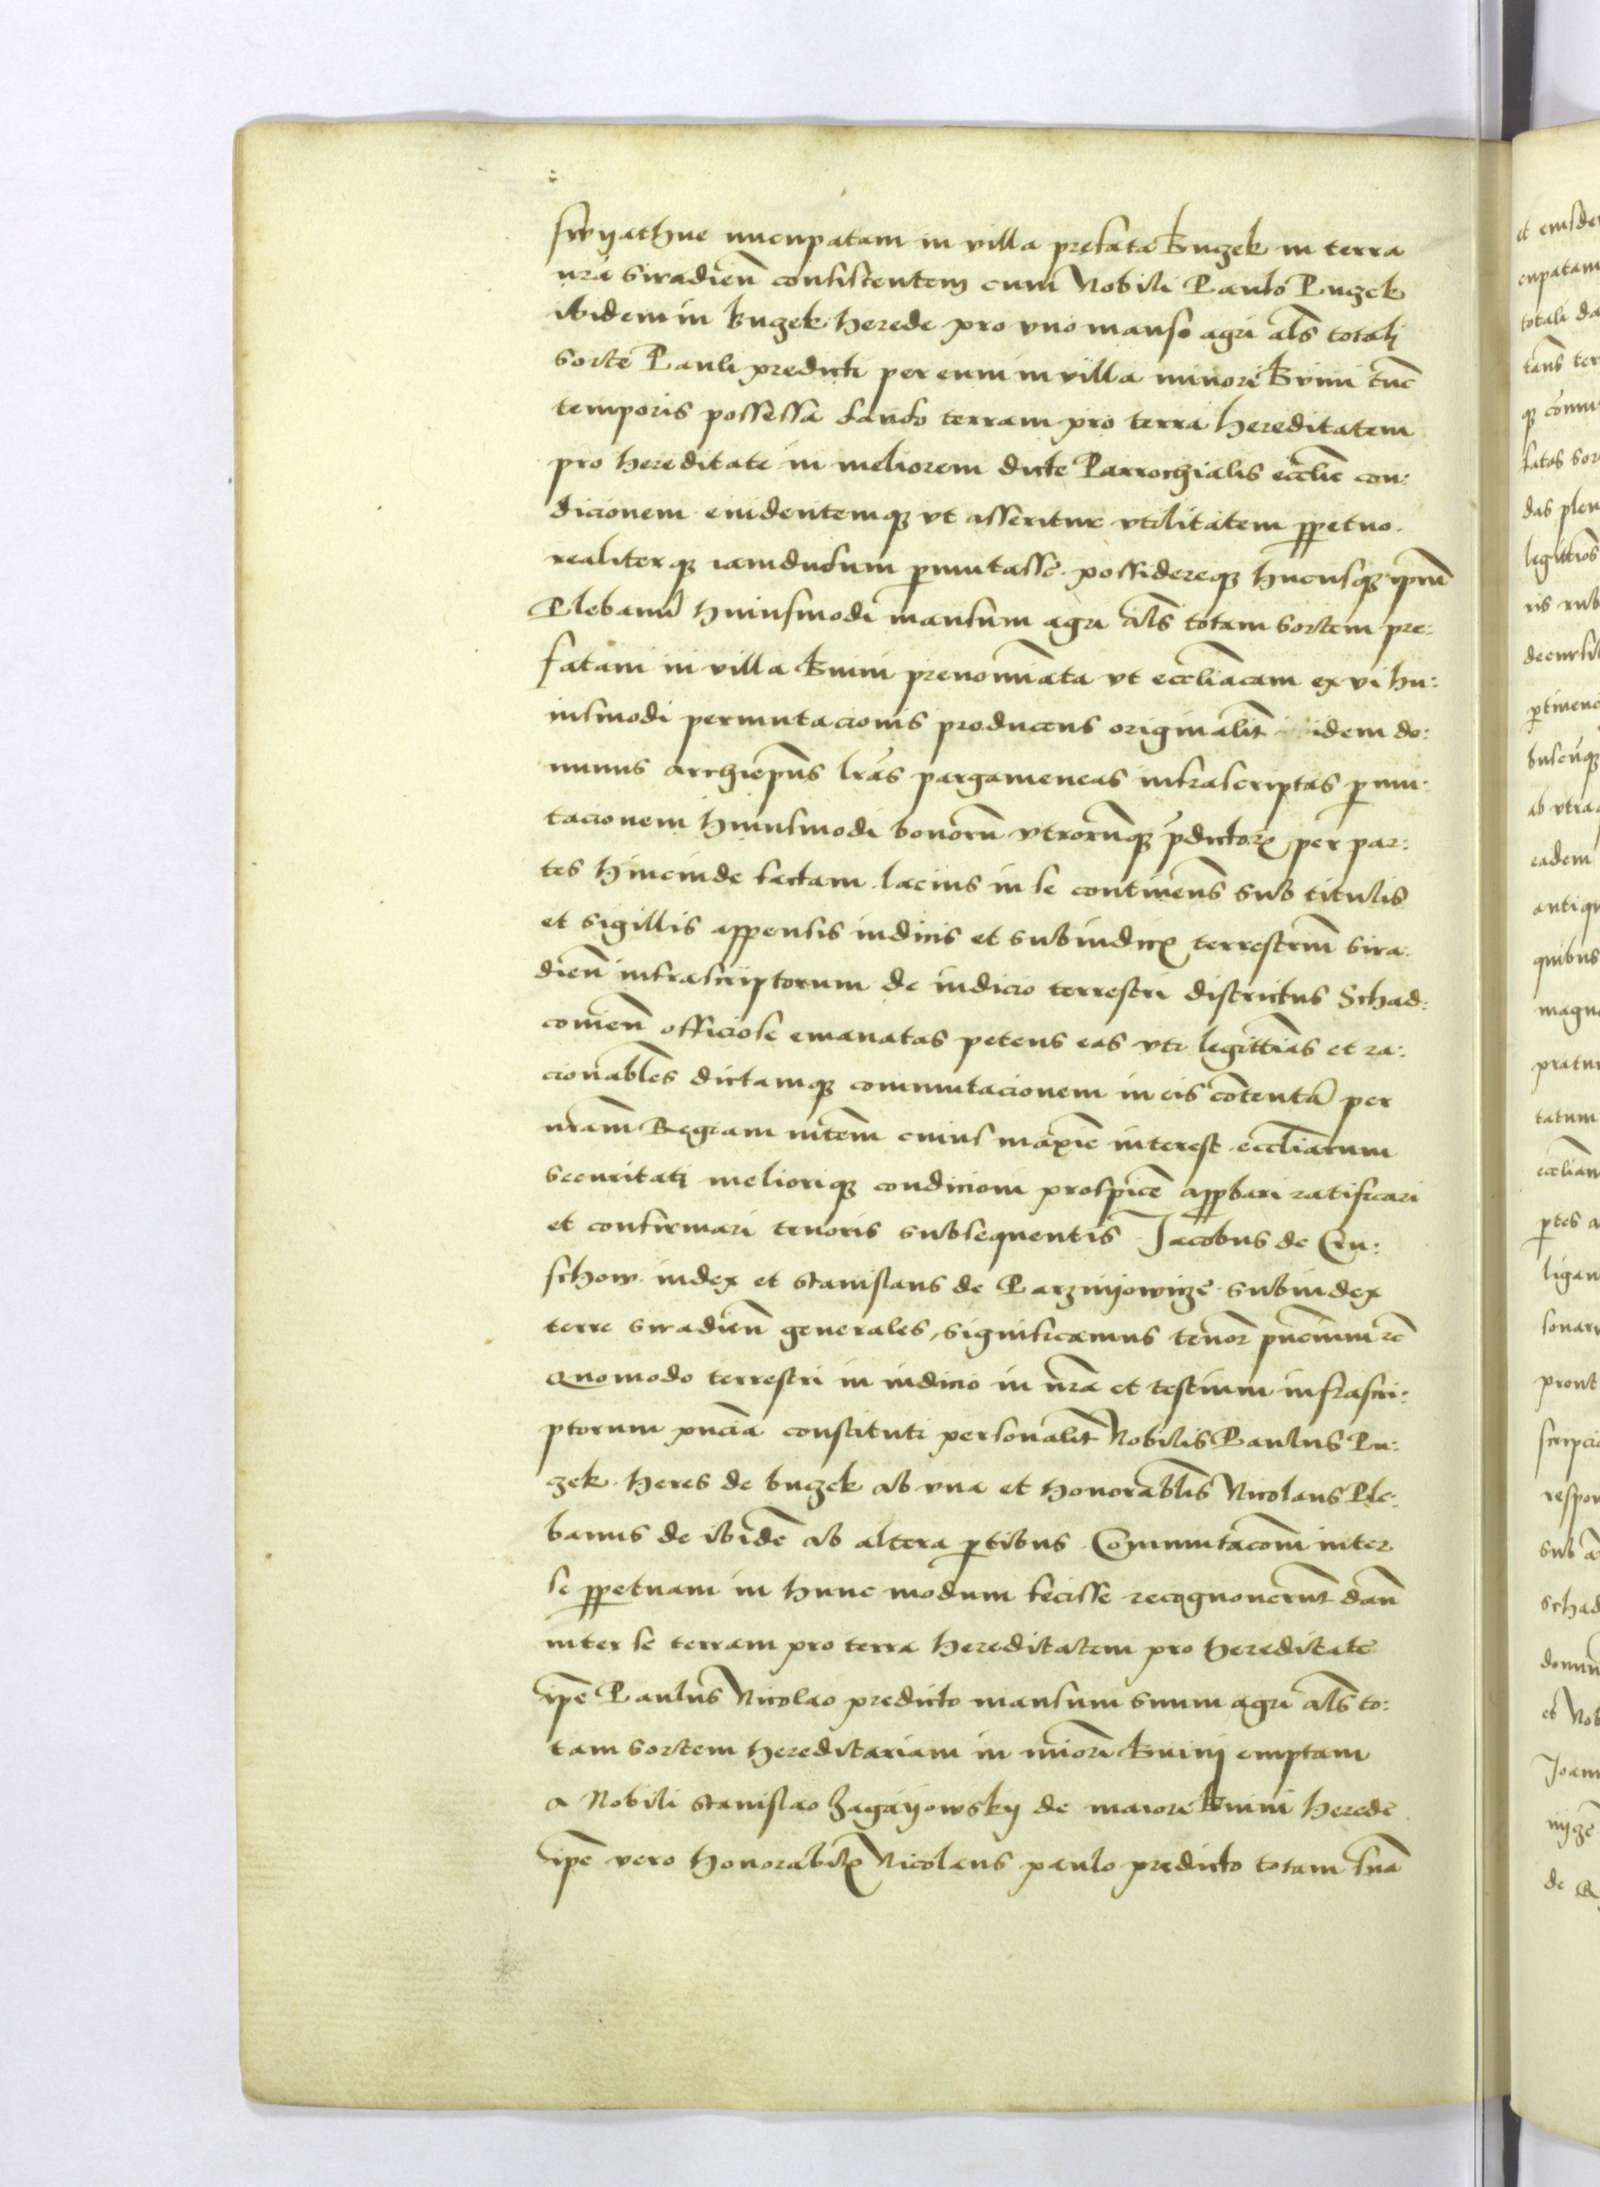 swyathne nuncupatam in villa prefata Buzek in terra
nra Siradien̄ consistentem cum Nobili Paulo Puzek
ibidem in Buzek herede pro vno manso agri als̄ totali
sorte Pauli predicti per eum in villa minore Bnini tūc
temporis possessa dando terram pro terra hereditatem
pro hereditate in meliorem dicte Parrochialis eccl̄ie con:
dicionem euidentemqꝫ vt asseritur vtilitatem ꝑpetuo
realiterqꝫ iamdudum ꝑmutasse possidereqꝫ hucusqꝫ ip̄m
Plebanū huiusmodi mansum agri als̄ totam sortem pre:
fatam in villa Bnini prenomīata vt eccl̄iacam ex vi hu:
iusmodi permutacionis producens originalit̄ idem do:
minus Archiep̄us lr̄as pargameneas infrascriptas ꝑmu:
tacionem huiusmodi bonorū vtrorūqꝫ p̄dictoꝝ per par:
tes hincinde factam lacius in se continen̄s sub titulis
et sigillis appensis iudicis et subiudicꝭ terrestriū Sira:
dien̄ infrascriptorum de iudicio terrestri districtus Schad:
couien̄ officiose emanatas petens eas vti legittīas et ra:
cionabl̄es dictamqꝫ commutacionem in eis cōtentā per
nr̄am Regiam mt̄em cuius maxīe interest eccl̄iarum
securitati melioriqꝫ condicioni prospicē apꝓbari ratificari
et confirmari tenoris subsequentis Jacobus de Cru:
schow iudex et Stanislaus de Parznijewicze subiudex
terre Siradien̄ generales, significamus tenore pn̄cium rc̄
Quomodo terrestri in iudicio in nr̄a et testium infrascri:
ptorum pn̄cia constituti personalit̄ Nobilis Paulus Pu:
zek heres de buzek ab vna et honorabl̄is Nicolaus Ple:
banus de ibidē ab altera ꝑtibus Commutacōm inter
se ꝑpetuam in hunc modum fecisse recognouerūt dan̄
inter se terram pro terra hereditatem pro hereditate
ip̄e Paulus Nicolao predicto mansum suum agri als̄ to:
tam sortem hereditariam in mīori Bninij emptam
a Nobili Stanislao Zagayowskij de maiore Bnini herede
ip̄e vero honorabilꝭ Nicolaus paulo predicto totam suā